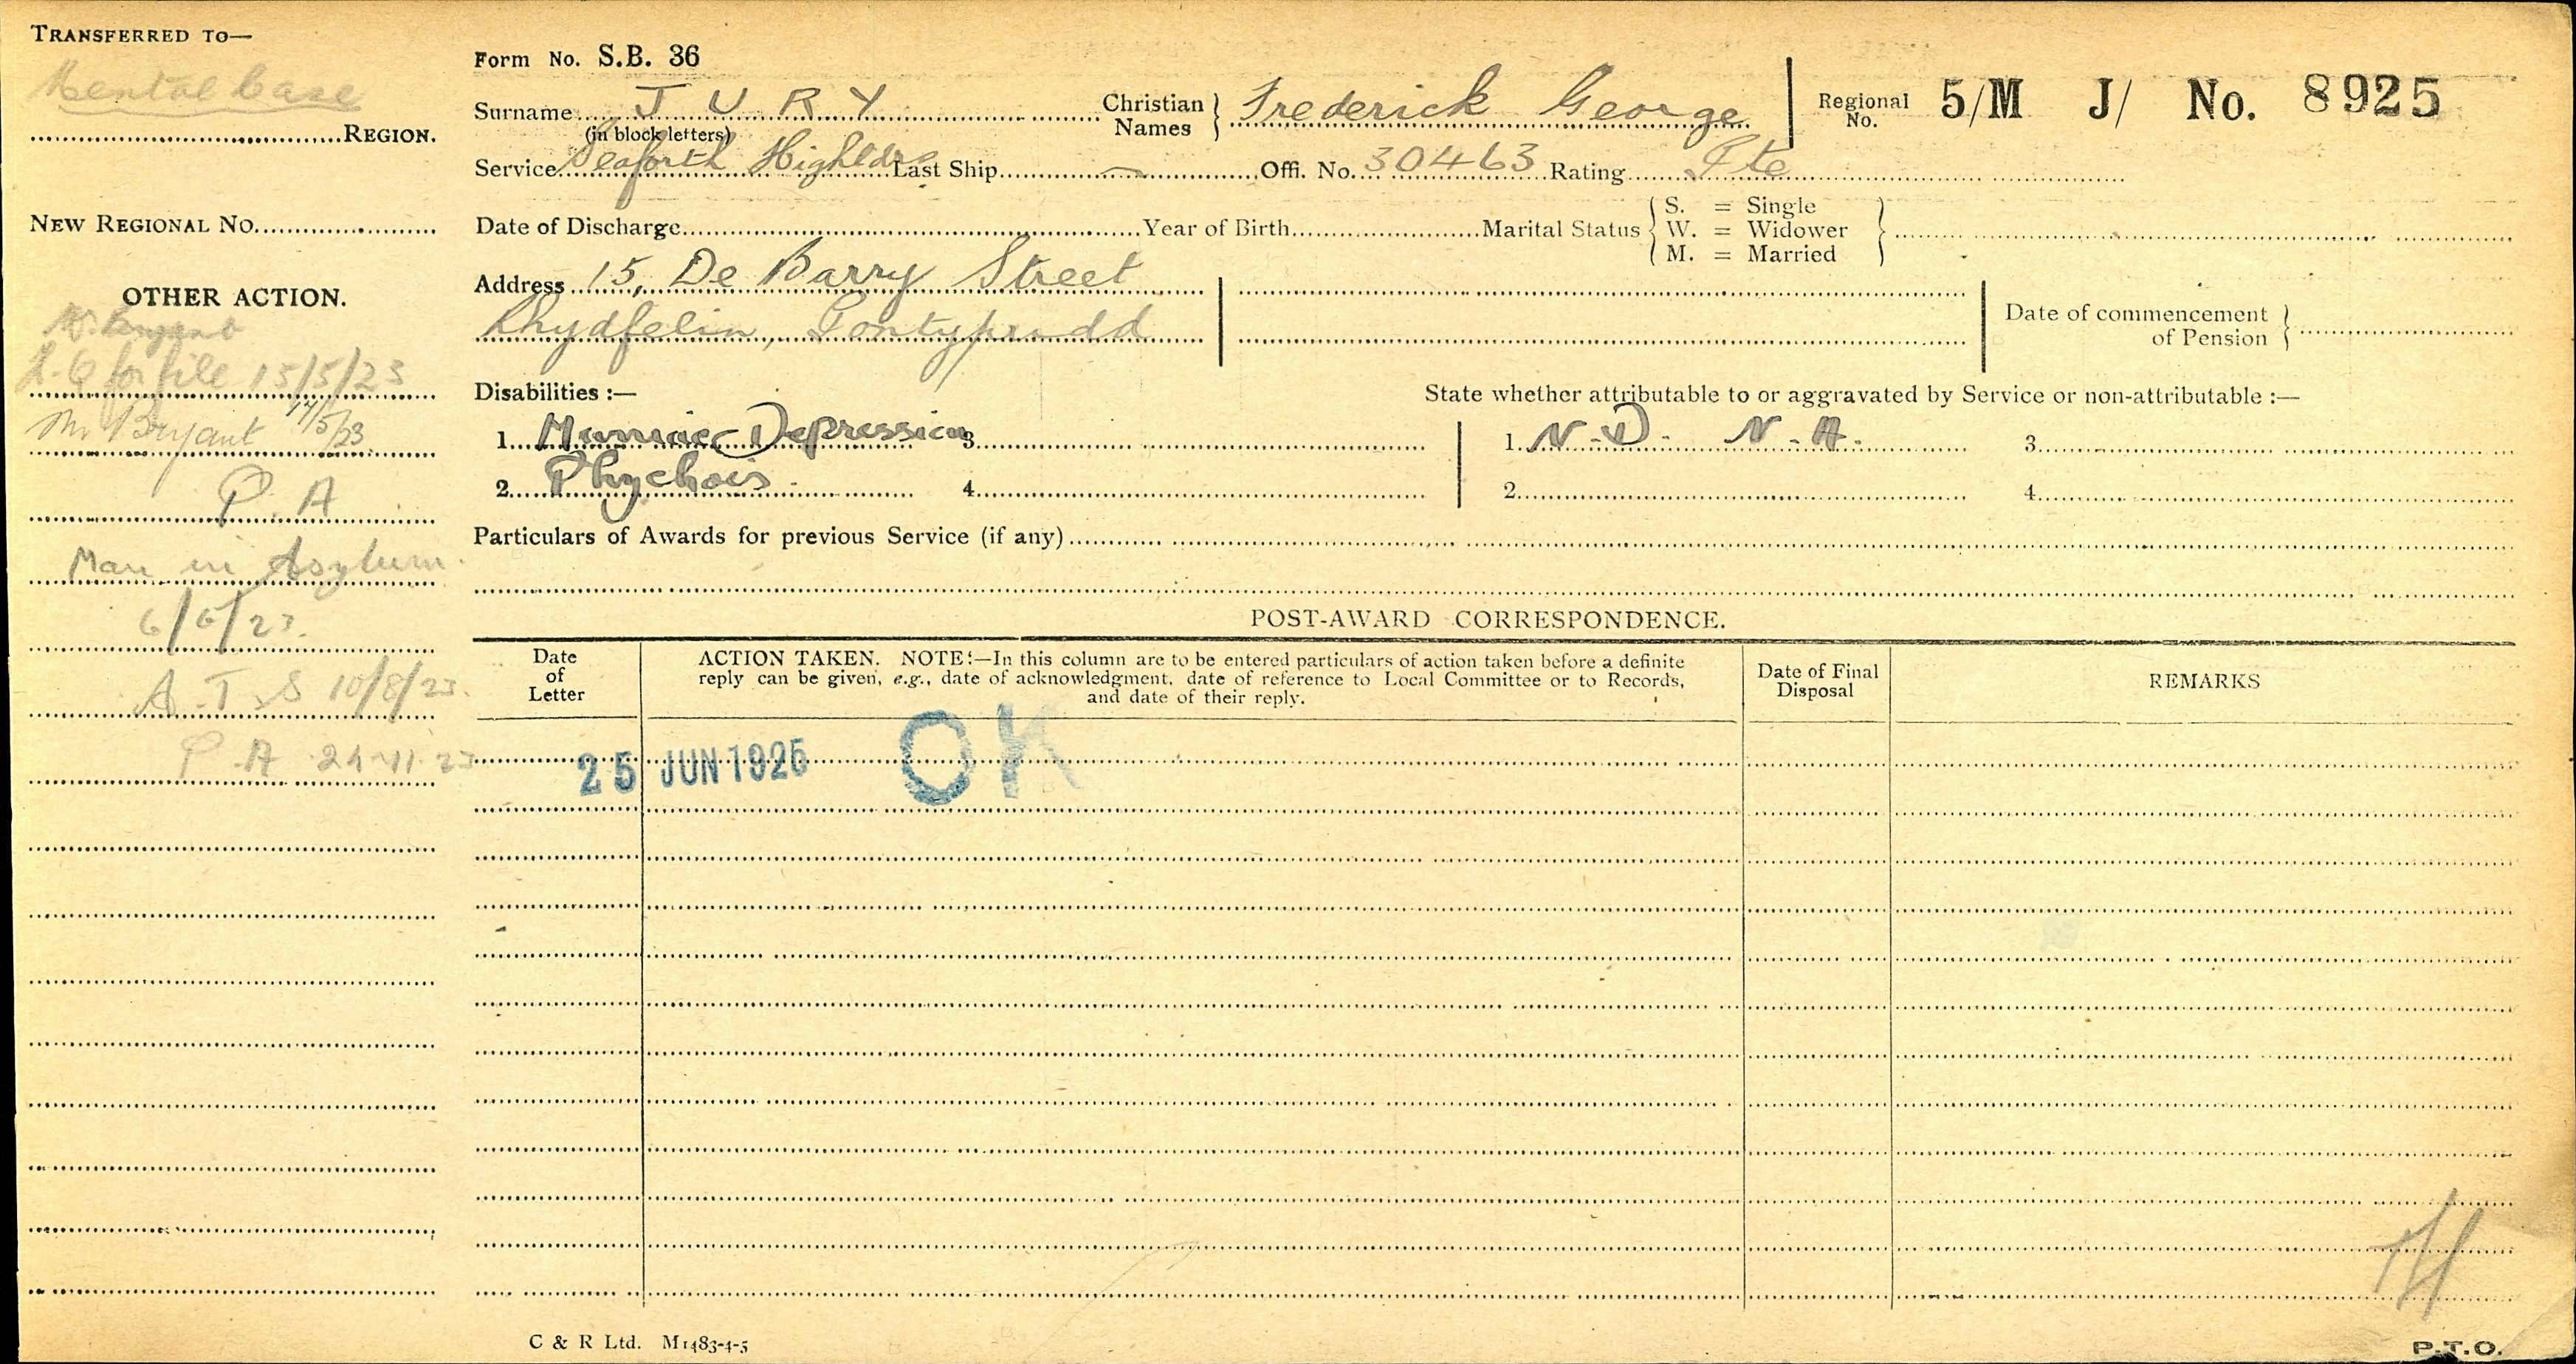 TRANSFERRED TO—
Mental Case
REGION.
NEW REGIONAL No.
OTHER ACTION.
Bryant
for file 15/5/23
Mr Bryant 17/5/23
P. A
Man in Asylum.
6/6/23.
A.T.S 10/8/23.
P.A 24-11-23
Form No. S.B. 36
Surname J U R Y Christian Names Frederick George Regional No. 5/M J/ No. 8925
(in block letters)
Service Seaforth Highldrs Last Ship — Offl. No. 30463 Rating Pte
Date of Discharge Year of Birth Marital Status S. = Single W. = Widower M. = Married
Address 15, De Barry Street
Rhydfelin, Pontypridd
Date of commencement of Pension
Disabilities :— State whether attributable to or aggravated by Service or non-attributable :—
1. Manniac Depression 3. 1. N.D. N.A. 3.
2. Phychois 4. 2. 4.
Particulars of Awards for previous Service (if any)
POST-AWARD CORRESPONDENCE.
Date of Letter
ACTION TAKEN. NOTE:—In this column are to be entered particulars of action taken before a definite
reply can be given, e.g., date of acknowledgment, date of reference to Local Committee or to Records,
and date of their reply.
Date of Final Disposal
REMARKS
25 JUN 1926 OK
C & R Ltd. M1483-4-5
P.T.O.